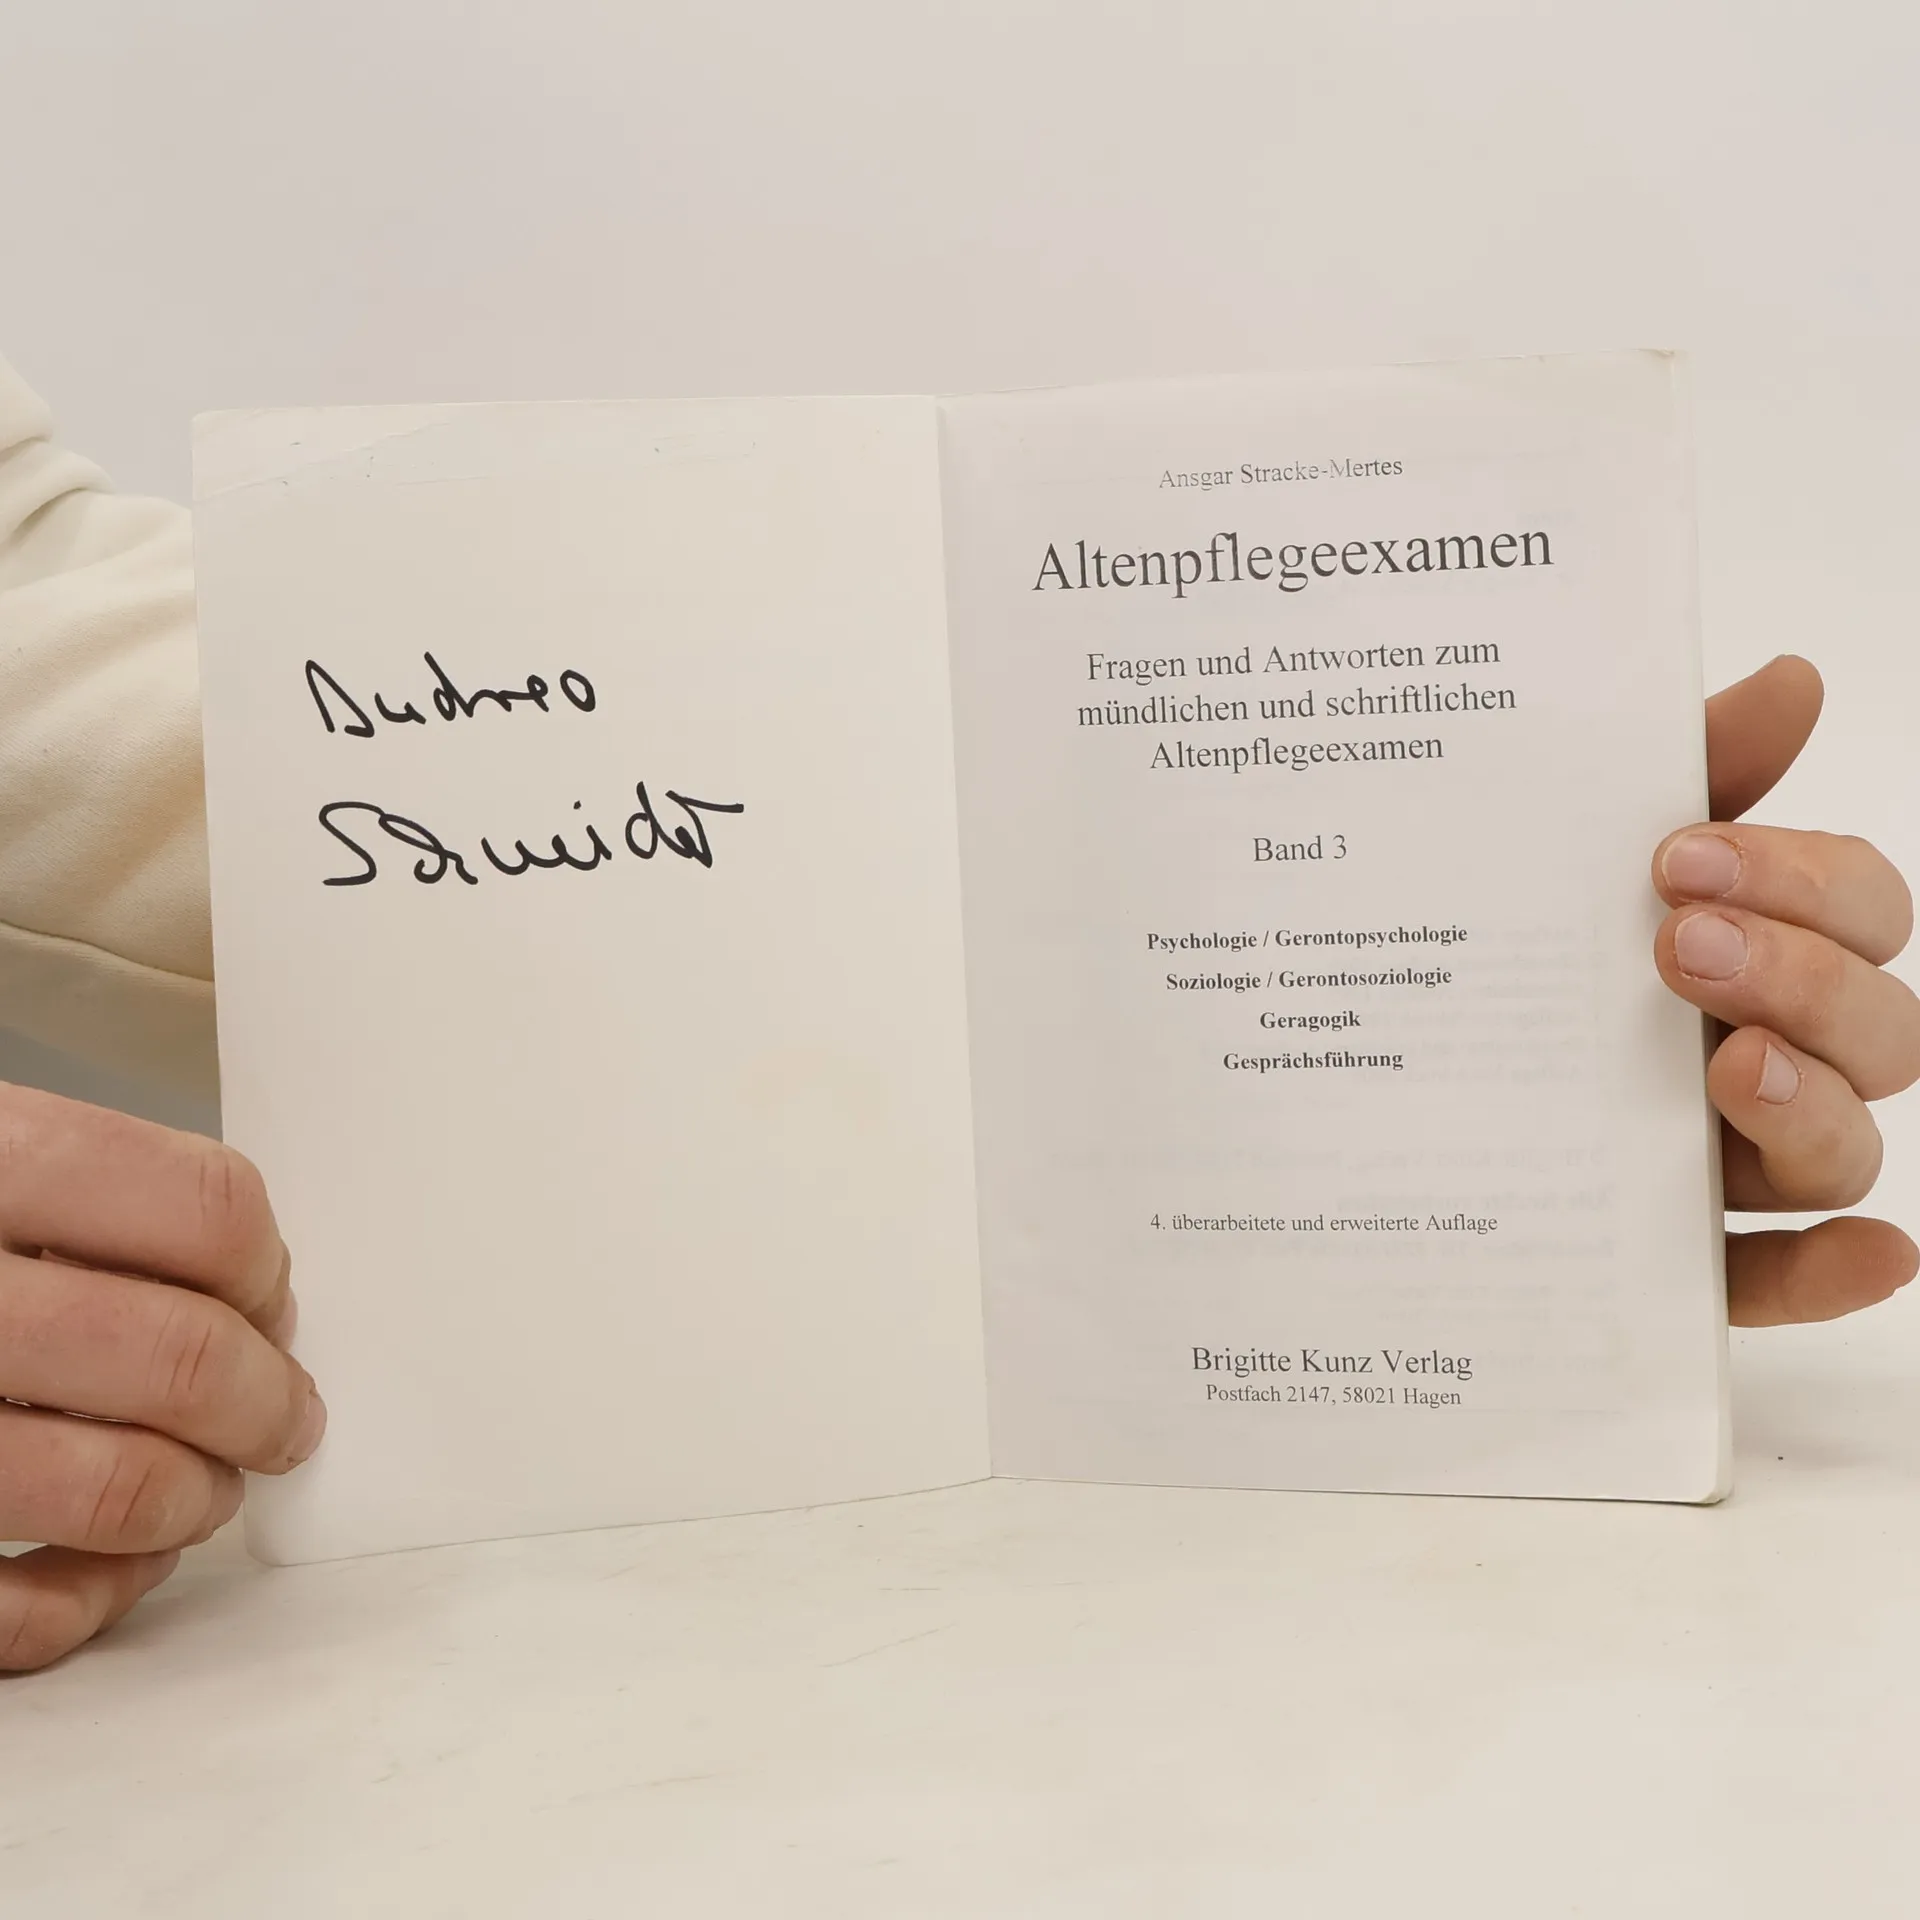 Andrea
Schneider
Ansgar Stracke-Mertes
Altenpflegeexamen
Fragen und Antworten zum
mündlichen und schriftlichen
Altenpflegeexamen
Band 3
Psychologie / Gerontopsychologie
Soziologie / Gerontosoziologie
Geragogik
Gesprächsführung
4. überarbeitete und erweiterte Auflage
Brigitte Kunz Verlag
Postfach 2147, 58021 Hagen